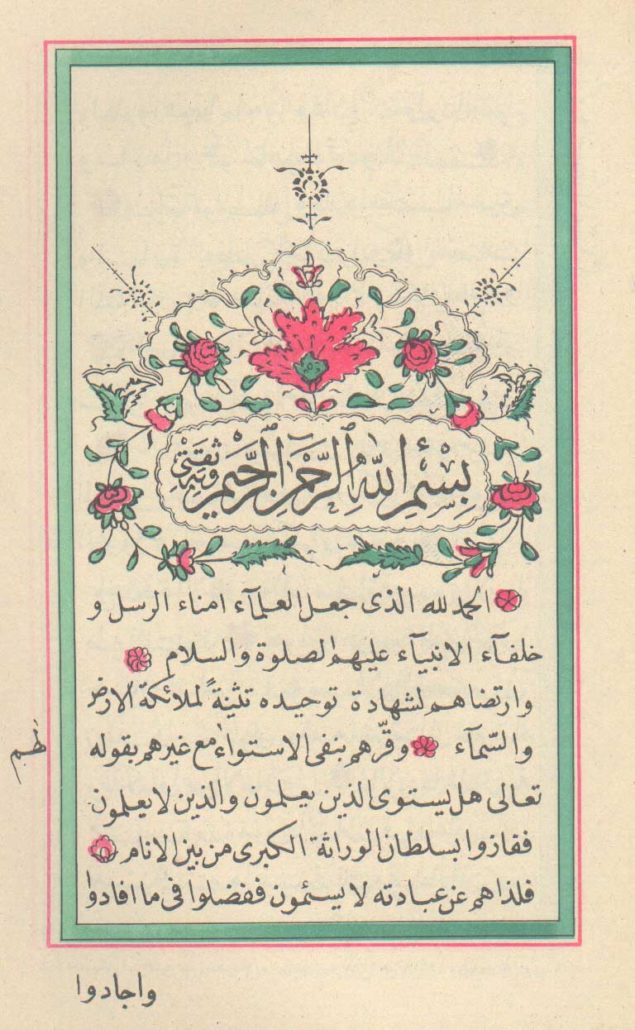 بسم الله الرحمن الرحيم وبه ثقتي
الحمد لله الذى جعل العلمآء امناء الرسل و
خلفآء الانبيآء عليهم الصلوة والسلام
وارتضاهم لشهادة توحيده تثنيةً لملائكة الارض
والسّمآء وقّرهم بنفى الاستواء مع غيرهم بقوله
تعالى هل يستوى الذين يعلمون والذين لايعلمون
ففازوا بسلطان الوراثة الكبرى من بين الانام
فلذاهم عن عبادته لا يسئمون ففضلوا فى ما افادوا
واجادوا